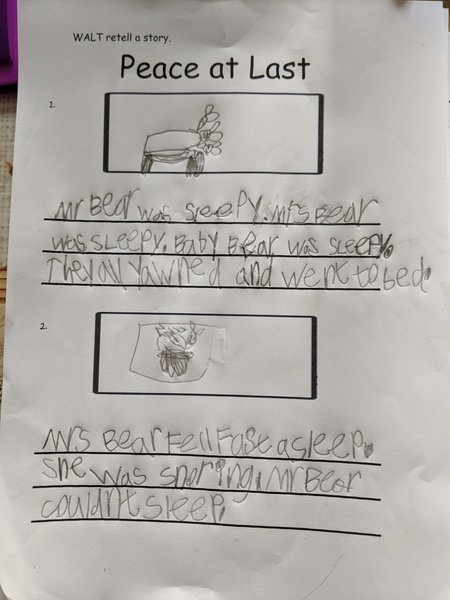 WALT retell a story.
Peace at Last
1.
Mr Bear was sleepy. Mrs Bear
was sleepy. Baby Bear was sleepy.
They all yawned and went to bed.
2.
Mrs Bear Fell Fast asleep.
She was snoring. Mr Bear
couldn't sleep.